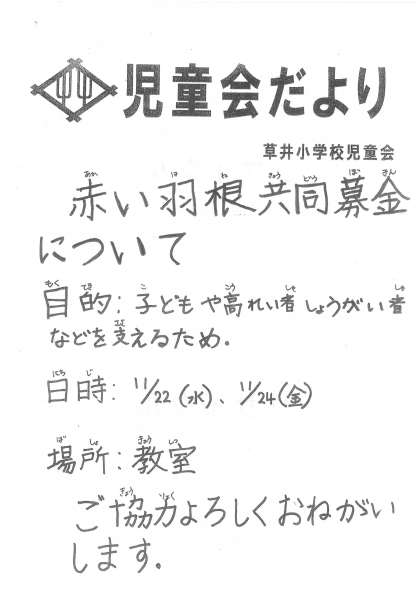 児童会だより
草井小学校児童会
赤い羽根共同募金
について
目的：子どもや高れい者しょうがい者
などを支えるため.
日時： 11/22(水)、11/24(金)
場所：教室
ご協力よろしくおねがい
します.